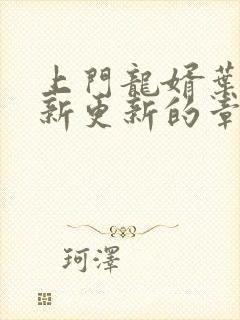 上門龍婿葉
新更新的章
珂澤